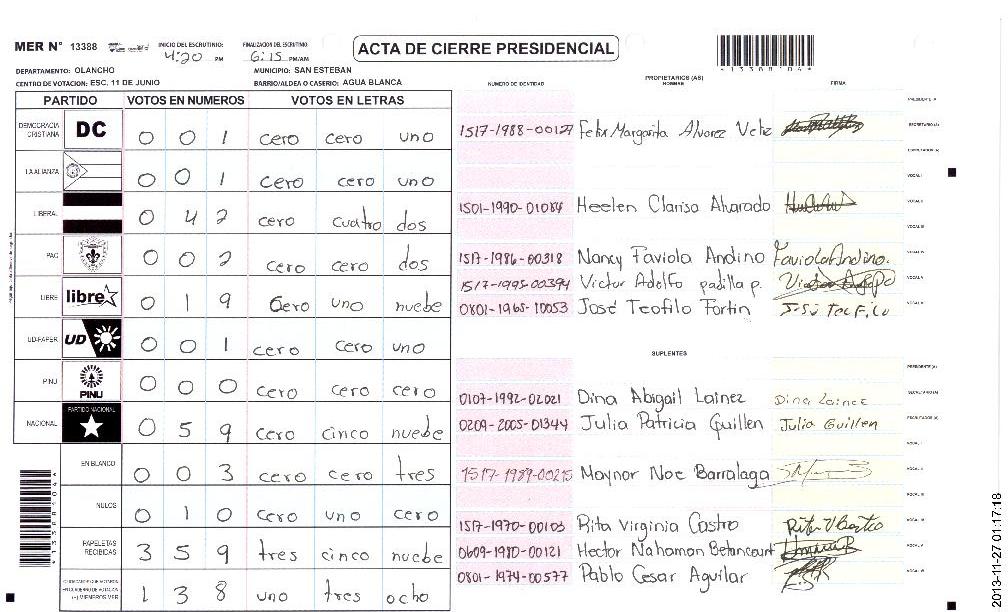 MER N° 13388 INICIO DEL ESCRUTINIO: 4:20 PM FINALIZACION DEL ESCRUTINIO: 6:15 PM/AM ACTA DE CIERRE PRESIDENCIAL
DEPARTAMENTO: OLANCHO MUNICIPIO: SAN ESTEBAN
CENTRO DE VOTACION: ESC. 11 DE JUNIO BARRIO/ALDEA O CASERIO: AGUA BLANCA
PARTIDO VOTOS EN NUMEROS VOTOS EN LETRAS
DEMOCRACIA CRISTIANA DC 0 0 1 cero cero uno
LA ALIANZA 0 0 1 cero cero uno
LIBERAL 0 4 2 cero cuatro dos
PAC 0 0 2 cero cero dos
LIBRE libre 0 1 9 cero uno nuebe
UD-FAPER UD 0 0 1 cero cero uno
PINU PINU 0 0 0 cero cero cero
NACIONAL PARTIDO NACIONAL 0 5 9 cero cinco nuebe
EN BLANCO 0 0 3 cero cero tres
NULOS 0 1 0 cero uno cero
PAPELETAS RECIBIDAS 3 5 9 tres cinco nuebe
1 3 8 uno tres ocho
13388104
PROPIETARIOS (AS)
NUMERO DE IDENTIDAD NOMBRE FIRMA
PRESIDENTE (A)
1517-1988-00127 Felix Margarita Alvarez Veliz SECRETARIO (A)
ESCRUTADOR (A)
VOCAL I
1501-1990-01084 Heelen Clarisa Alvarado VOCAL II
VOCAL III
1517-1986-00318 Nancy Faviola Andino Faviola Andino. VOCAL IV
1517-1995-00394 Victor Adolfo padilla p. VOCAL V
0801-1965-10053 José Teofilo Fortin VOCAL VI
SUPLENTES
PRESIDENTE (A)
0107-1992-02021 Dina Abigail Lainez Dina Lainez SECRETARIO (A)
0209-2005-01344 Julia Patricia Guillen Julia Guillen ESCRUTADOR (A)
VOCAL I
1517-1989-00215 Maynor Noe Barralaga VOCAL II
VOCAL III
1517-1970-00103 Rita Virginia Castro VOCAL IV
0609-1980-00121 Hector Nahaman Betancourt VOCAL V
0801-1974-00577 Pablo Cesar Aguilar VOCAL VI
13388104
2013-11-27 01:17:18